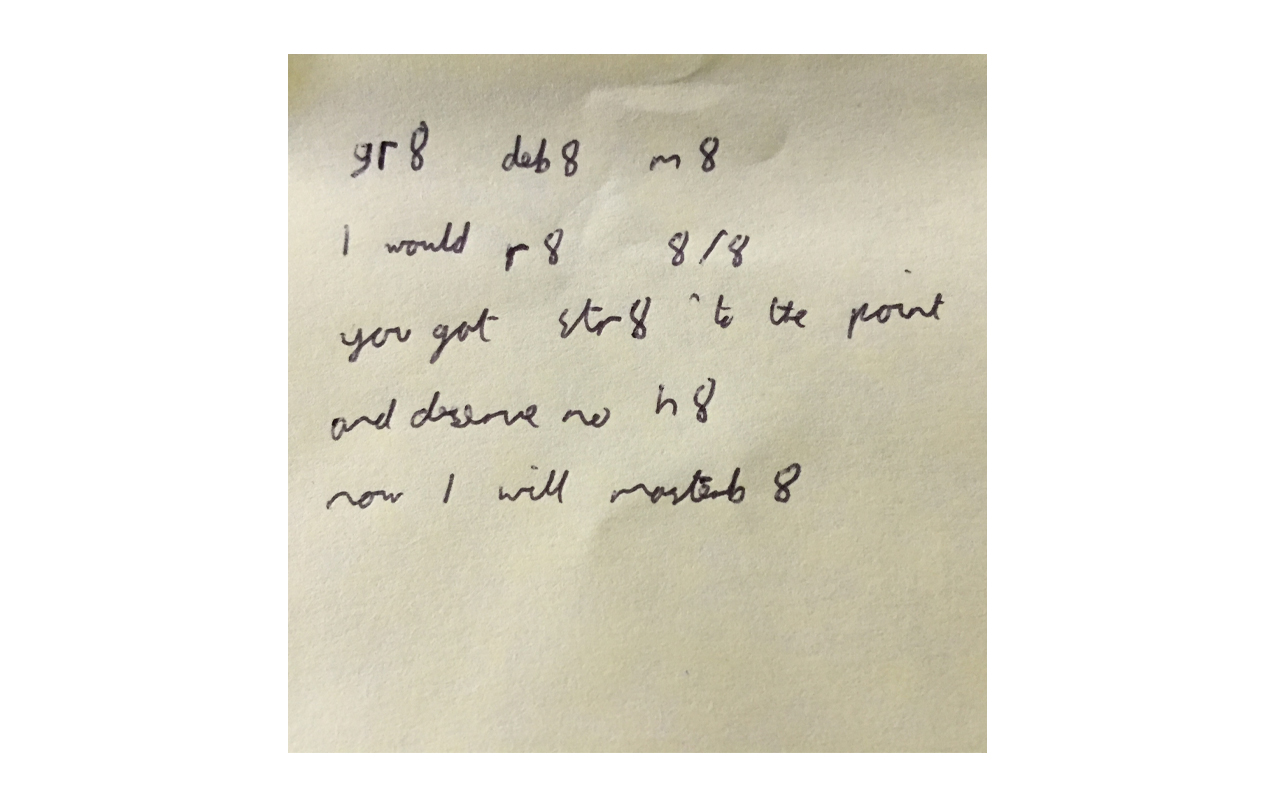 gr8 deb8 m8
I would r8 8/8
you got str8 to the point
and deserve no h8
now I will masterb8